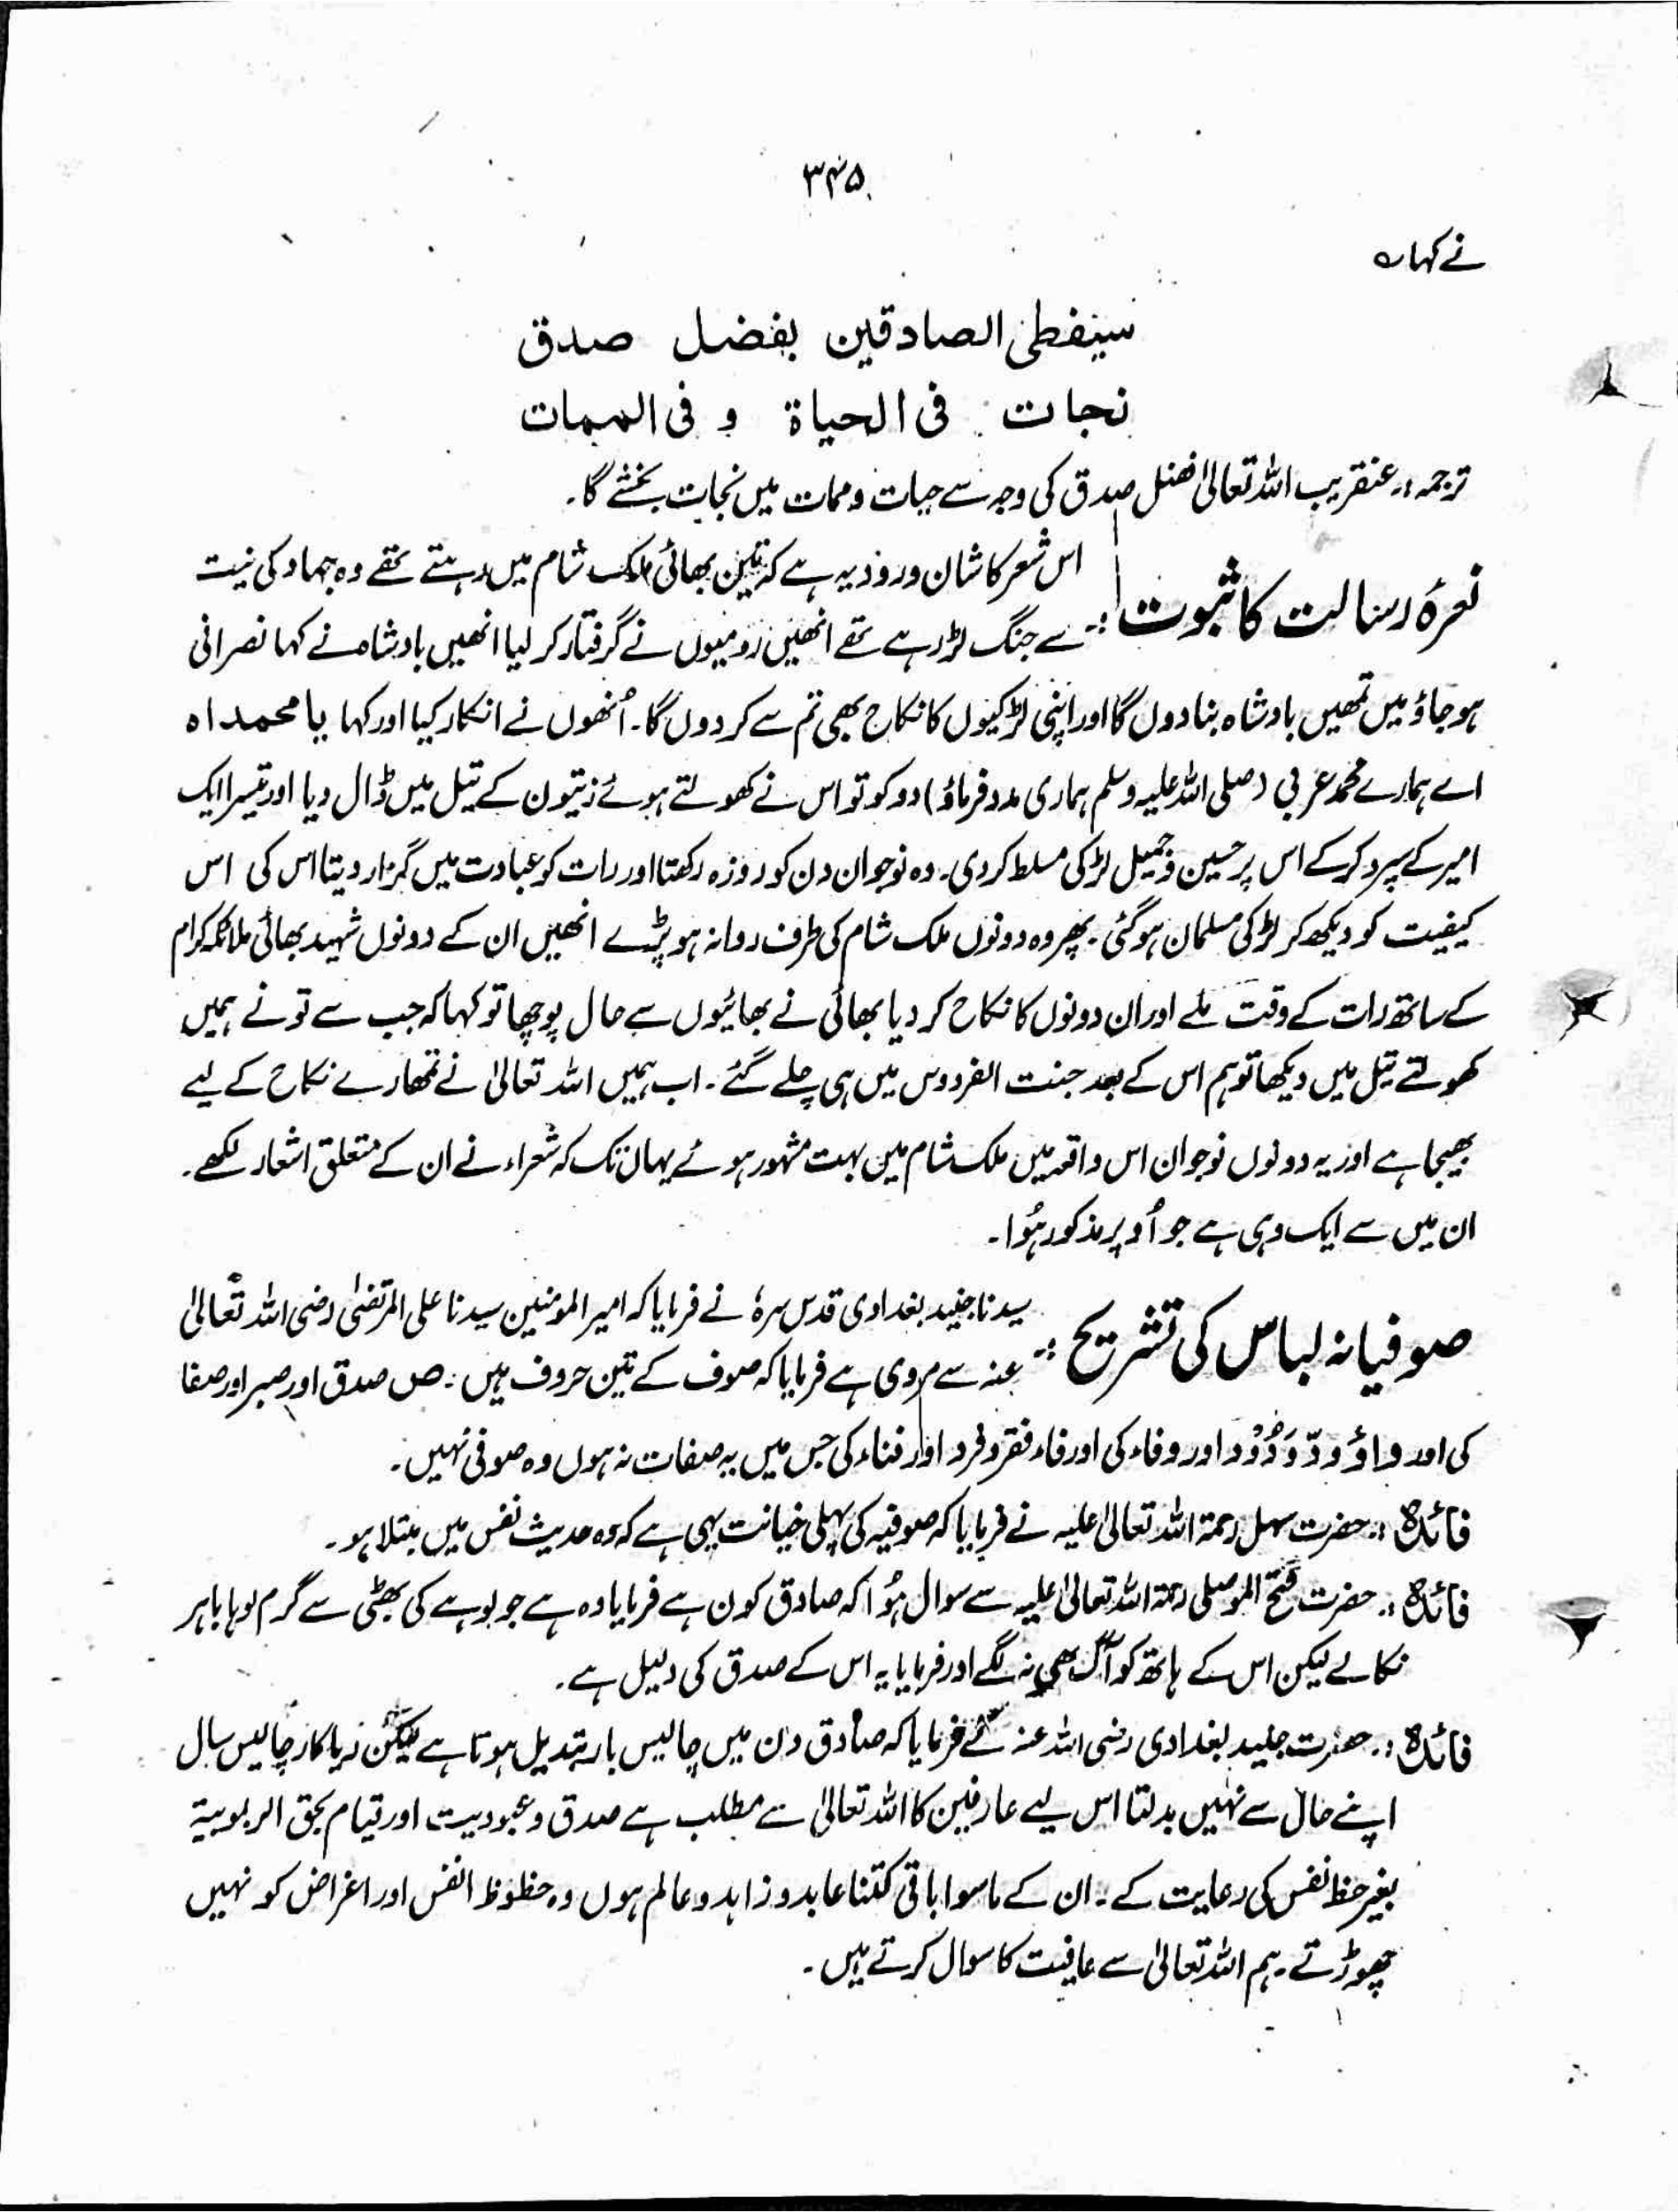 ۳۴۵
نے کہا ؎
سیفطی الصادقین بفضل صدق
نجات فی الحیاۃ و فی الممات
ترجمہ :۔ عنقریب اللہ تعالیٰ فضل صدق کی وجہ سے حیات و ممات میں نجات بخشے گا۔
نعرۂ رسالت کا ثبوت :۔ اس شعر کا شان ورود یہ ہے کہ تین بھائی ملک شام میں رہتے تھے وہ جہاد کی نیت
سے جنگ لڑ رہے تھے انھیں رومیوں نے گرفتار کر لیا انھیں بادشاہ نے کہا نصرانی
ہو جاؤ میں تمھیں بادشاہ بنا دوں گا اور اپنی لڑکیوں کا نکاح بھی تم سے کر دوں گا۔ اُنھوں نے انکار کیا اور کہا یا محمداہ
اے ہمارے محمد عربی (صلی اللہ علیہ وسلم ہماری مدد فرماؤ) دو کو تو اس نے کھولتے ہوئے زیتون کے تیل میں ڈال دیا اور تیسرا ایک
امیر کے سپرد کر کے اس پر حسین و جمیل لڑکی مسلط کر دی۔ وہ نوجوان دن کو روزہ رکھتا اور رات کو عبادت میں گزار دیتا اس کی اس
کیفیت کو دیکھ کر لڑکی مسلمان ہو گئی۔ پھر وہ دونوں ملک شام کی طرف روانہ ہو پڑے انھیں ان کے دونوں شہید بھائی ملائکہ کرام
کے ساتھ رات کے وقت ملے اور ان دونوں کا نکاح کر دیا بھائی نے بھائیوں سے حال پوچھا تو کہا کہ جب سے تو نے ہمیں
کھولتے تیل میں دیکھا تو ہم اس کے بعد جنت الفردوس میں ہی چلے گئے۔ اب ہمیں اللہ تعالیٰ نے تمھارے نکاح کے لیے
بھیجا ہے اور یہ دونوں نوجوان اس واقعہ میں ملک شام میں بہت مشہور ہوئے یہاں تک کہ شعراء نے ان کے متعلق اشعار لکھے۔
ان میں سے ایک وہی ہے جو اُوپر مذکور ہُوا۔
صوفیانہ لباس کی تشریح :۔ سیدنا جنید بغدادی قدس سرہٗ نے فرمایا کہ امیر المومنین سیدنا علی المرتضیٰ رضی اللہ تعالیٰ
عنہ سے مروی ہے فرمایا کہ صوف کے تین حروف ہیں۔ ص صدق اور صبر اور صفا
کی اور واؤ وِدّ وَدُوْد اور وفاء کی اور فاء فقر و فرد اور فناء کی جس میں یہ صفات نہ ہوں وہ صوفی نہیں۔
فائدہ :۔ حضرت سہل رحمۃ اللہ تعالیٰ علیہ نے فرمایا کہ صوفیہ کی پہلی خیانت یہی ہے کہ وہ حدیث نفس میں مبتلا ہو۔
فائدہ :۔ حضرت فتح الموصلی رحمۃ اللہ تعالیٰ علیہ سے سوال ہُوا کہ صادق کون ہے فرمایا وہ ہے جو لوہے کی بھٹی سے گرم لوہا باہر
نکالے لیکن اس کے ہاتھ کو آگ بھی نہ لگے اور فرمایا یہ اس کے صدق کی دلیل ہے۔
فائدہ :۔ حضرت جنید بغدادی رضی اللہ عنہ نے فرمایا کہ صادق دن میں چالیس بار تبدیل ہوتا ہے لیکن ریاکار چالیس سال
اپنے حال سے نہیں بدلتا اس لیے عارفین کا اللہ تعالیٰ سے مطلب ہے صدق و عبودیت اور قیام بحق الربوبیۃ
بغیر حظ نفس کی رعایت کے۔ ان کے ماسوا باقی کتنا عابد و زاہد و عالم ہوں وہ حظوظ النفس اور اغراض کو نہیں
چھوڑتے۔ ہم اللہ تعالیٰ سے عافیت کا سوال کرتے ہیں۔